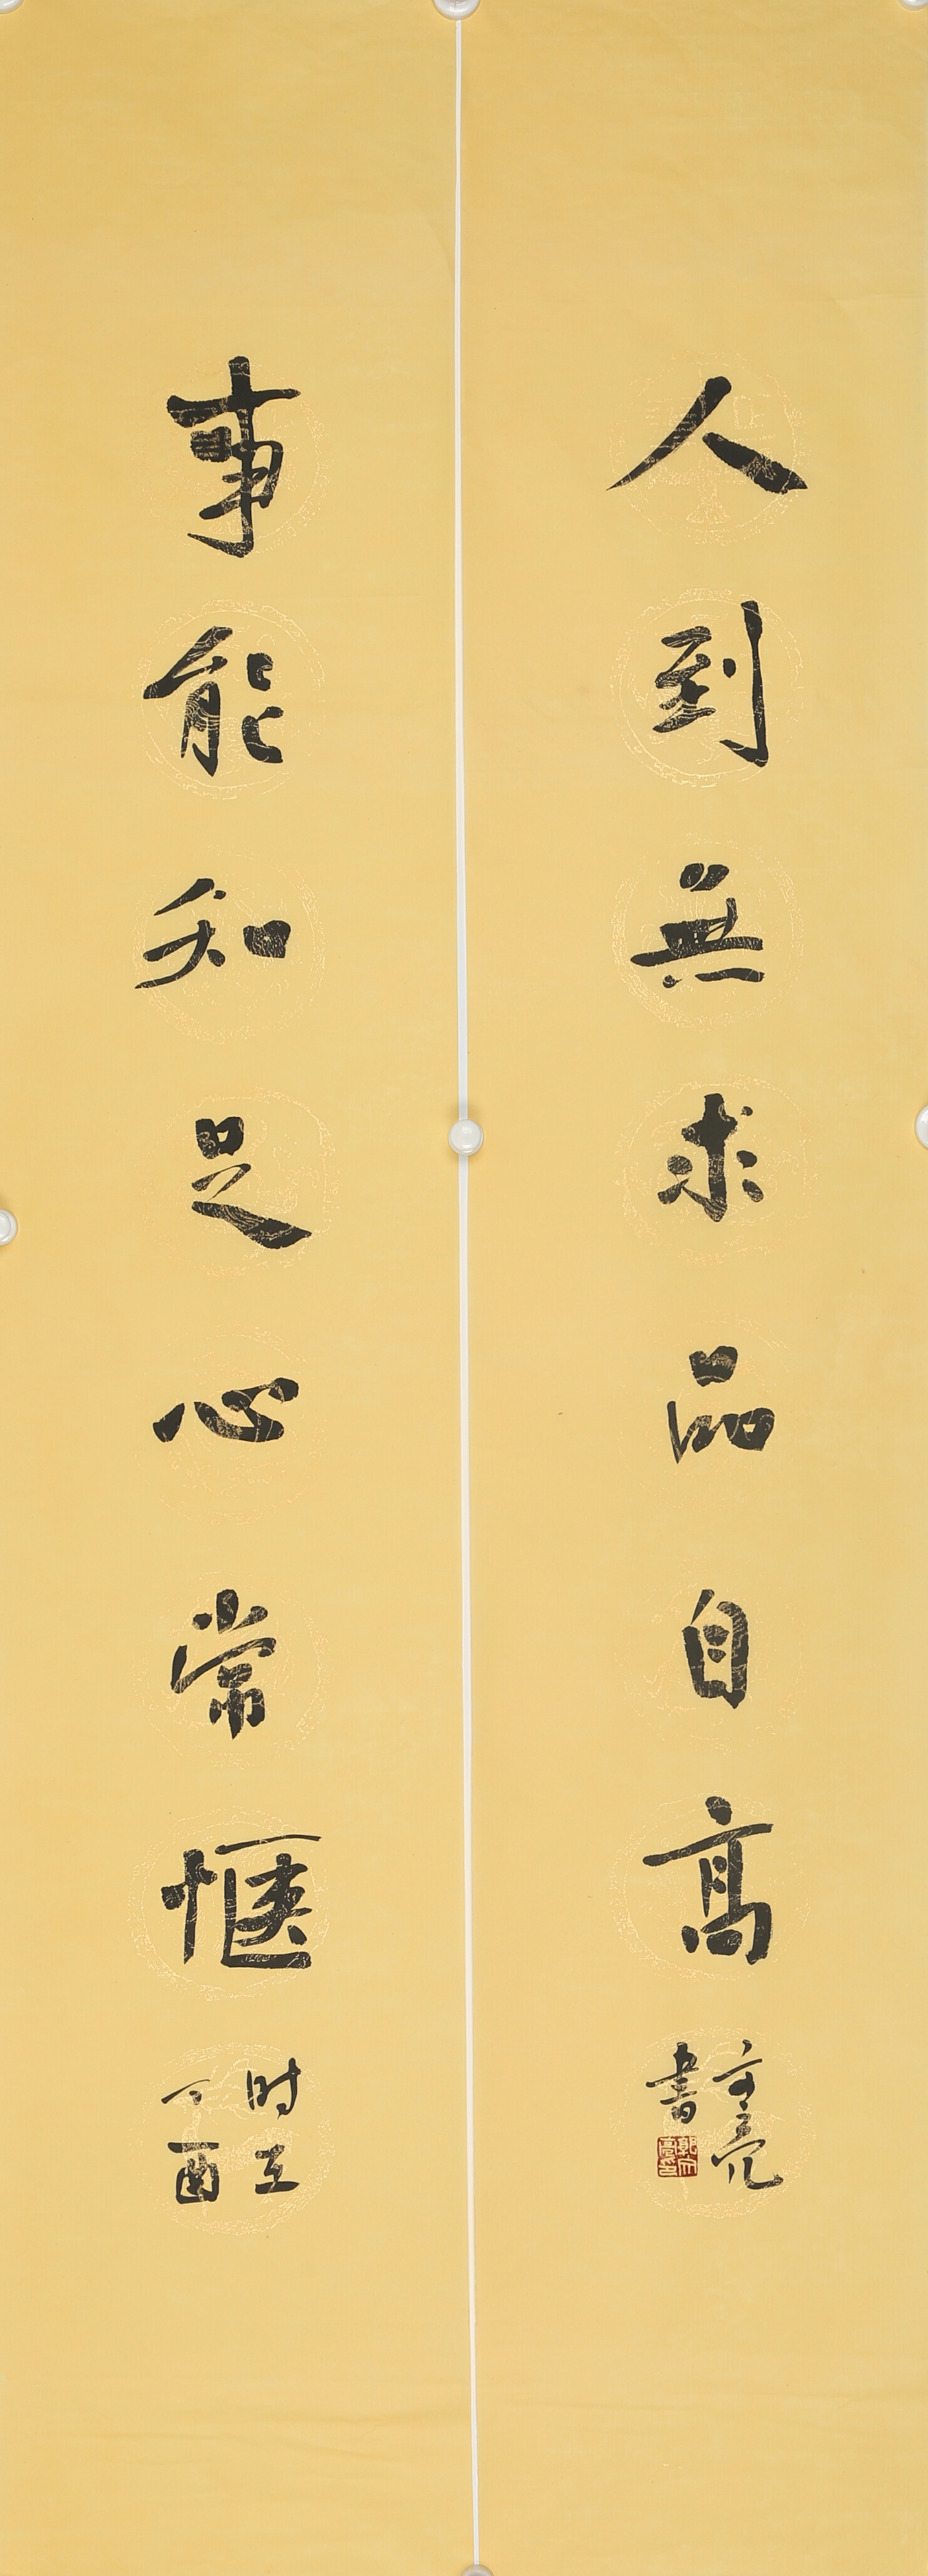 人到無求品自高
亮
書
事能知足心常惬
时在
丁酉